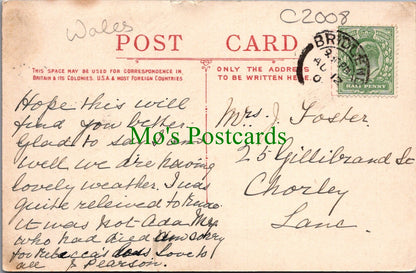 Wales
C2008
POST CARD
THIS SPACE MAY BE USED FOR CORRESPONDENCE IN
BRITAIN & ITS COLONIES, U.S.A & MOST FOREIGN COUNTRIES.
ONLY THE ADDRESS
TO BE WRITTEN HERE.
BRIDGEN
HALF PENNY
Hope this will
find you better.
Glad to say I am
well we are having
lovely weather. I was
quite releived to know
it was not Ada
who had died am sorry
for Rebecca's loss Love to
all J Pearson.
Mrs. J. Foster
25 Gillibrand St
Chorley
Lanc.
Mo's Postcards